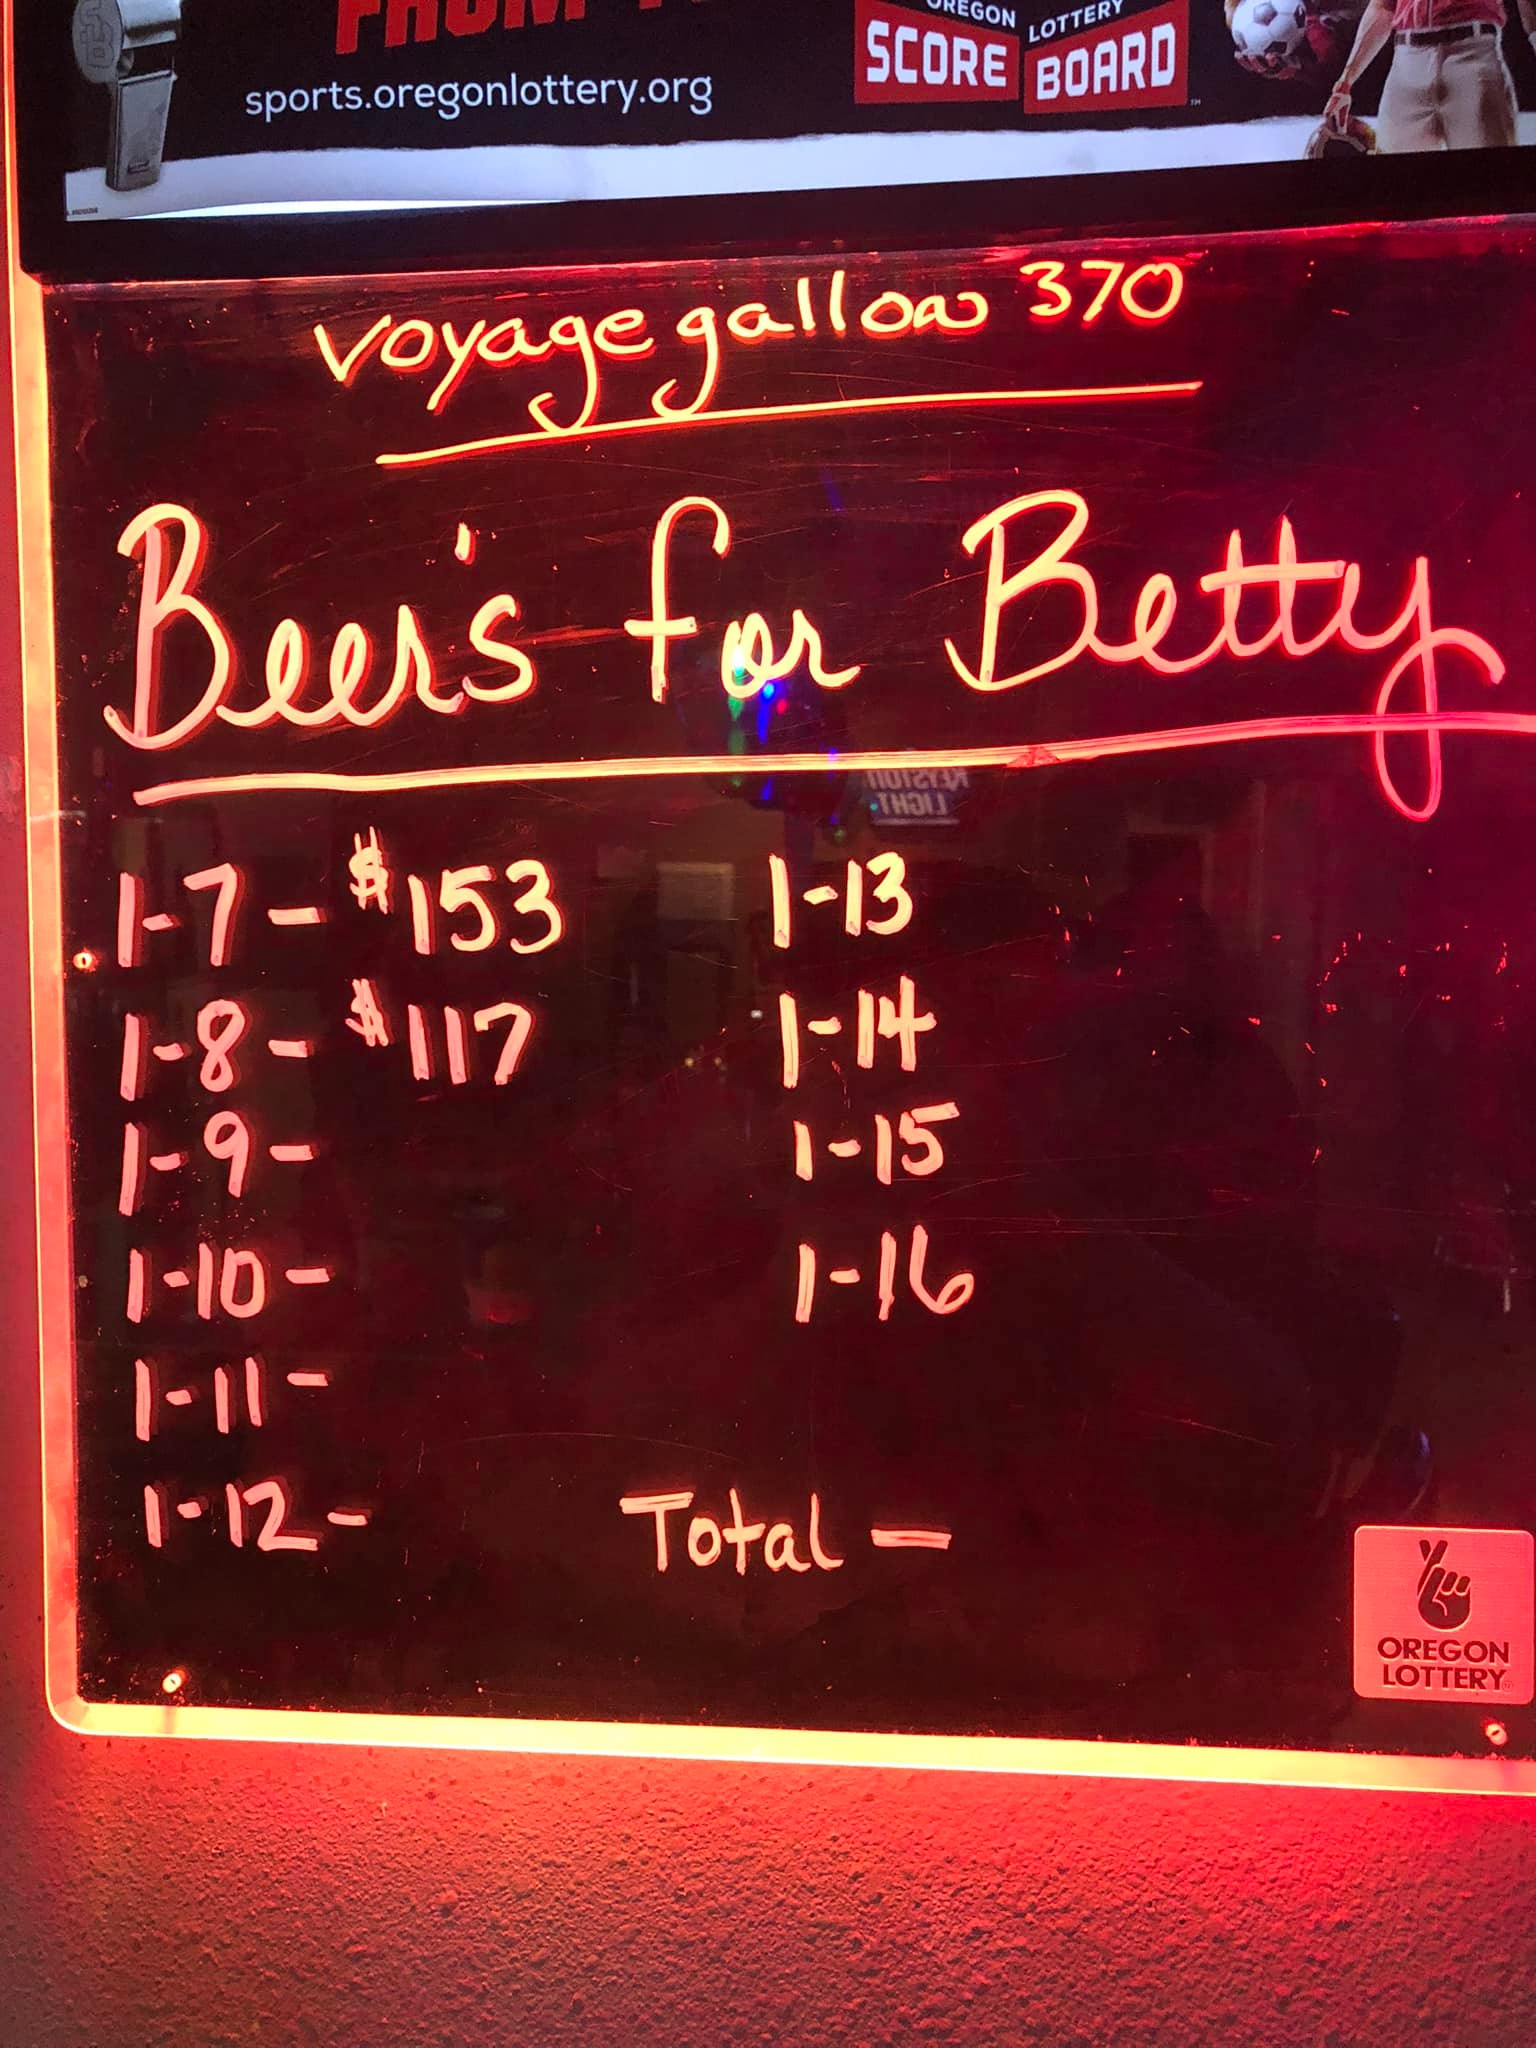 sports.oregonlottery.org
OREGON LOTTERY
SCORE BOARD
TM
voyage gallow 370
Beer's for Betty
LIGHT
1-7 - $153
1-8 - $117
1-9 -
1-10 -
1-11 -
1-12 -
1-13
1-14
1-15
1-16
Total -
OREGON
LOTTERY